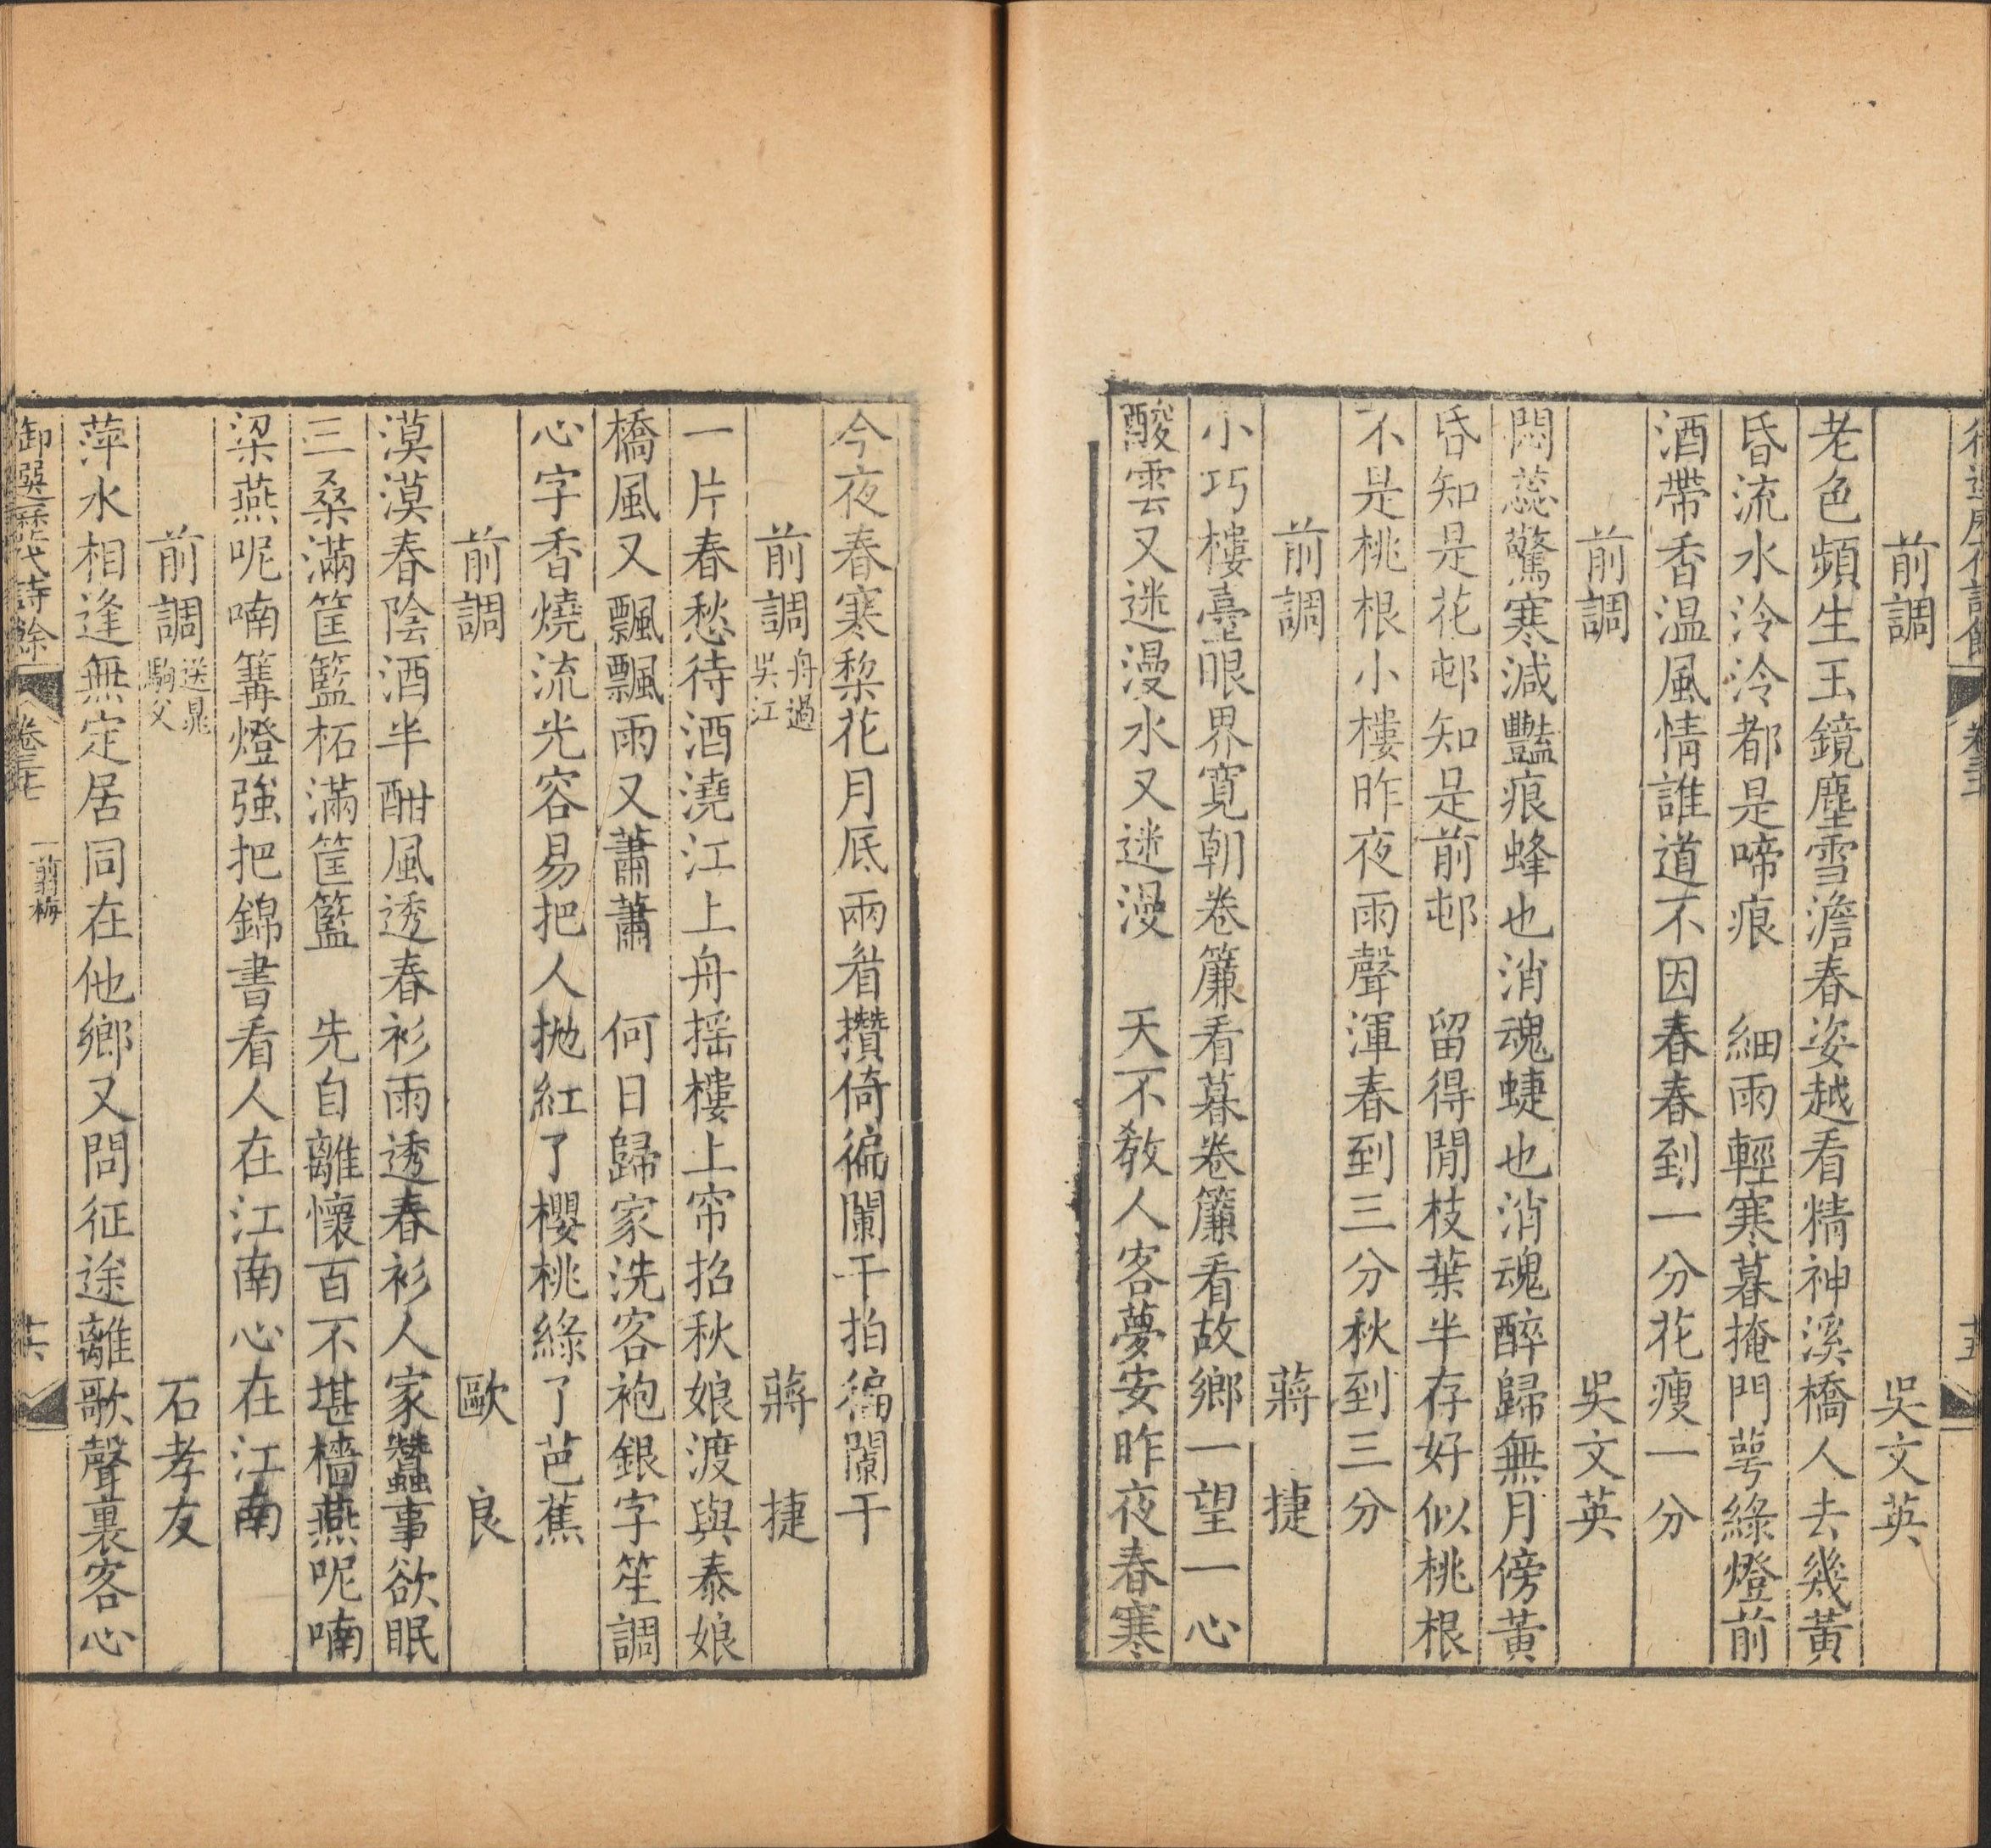 前調 吳文英
老色頻生玉鏡塵雪澹春姿越看精神溪橋人去幾黃
昏流水泠泠都是啼痕 細雨輕寒暮掩門萼綠燈前
酒帶香温風情誰道不因春春到一分花瘦一分
前調 吳文英
悶蕊驚寒減豔痕蜂也消魂蜨也消魂醉歸無月傍黃
昏知是花邨知是前邨 留得閒枝葉半存好似桃根
不是桃根小樓昨夜雨聲渾春到三分秋到三分
前調 蔣捷
小巧樓臺眼界寬朝卷簾看暮卷簾看故鄉一望一心
酸雲又迷漫水又迷漫 天不教人客夢安昨夜春寒
今夜春寒棃花月底兩眉攢倚徧闌干拍徧闌干
前調 舟過吳江 蔣捷
一片春愁待酒澆江上舟摇樓上帘招秋娘渡與泰娘
橋風又飄飄雨又蕭蕭 何日歸家洗客袍銀字笙調
心字香燒流光容易把人抛紅了櫻桃綠了芭蕉
前調 歐良
漠漠春陰酒半酣風透春衫雨透春衫人家蠶事欲眠
三桑滿筐籃柘滿筐籃 先自離懷百不堪檣燕呢喃
梁燕呢喃篝燈強把錦書看人在江南心在江南
前調 送晁駒父 石孝友
萍水相逢無定居同在他鄉又問征途離歌聲裏客心
御選歷代詩餘 卷三十七 一翦梅 十六